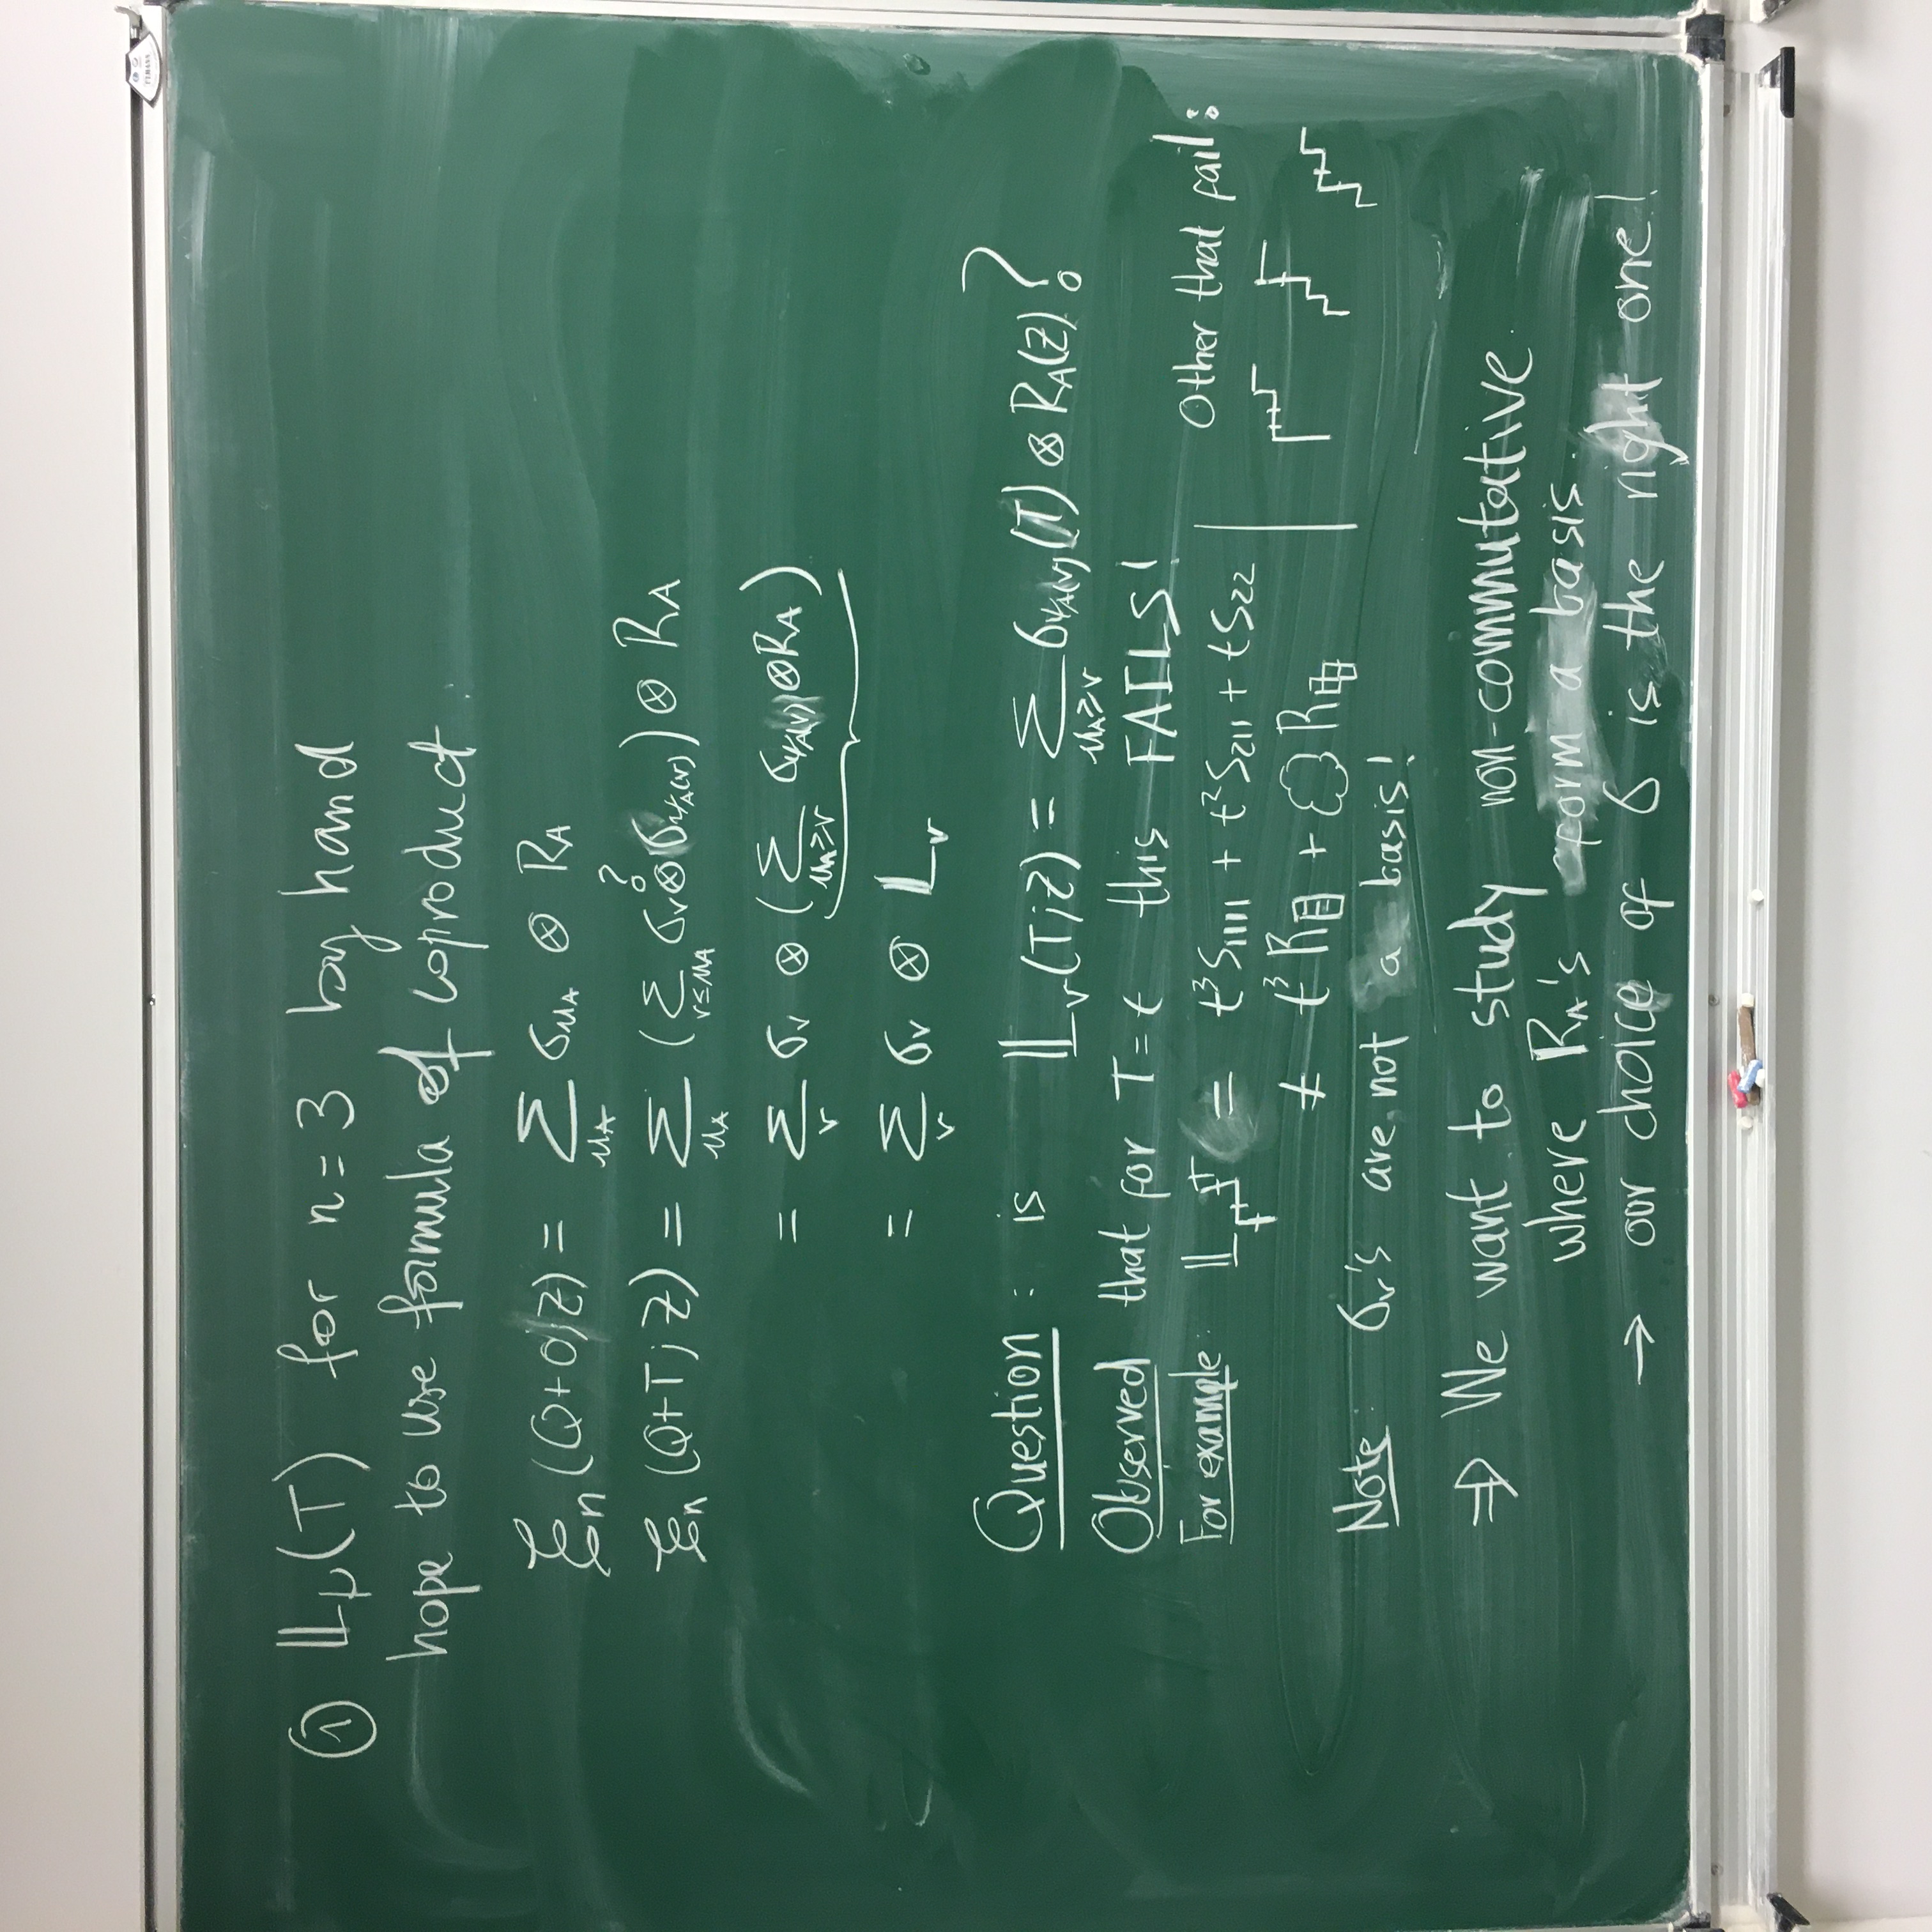 ① 𝕃_μ(T) for n = 3 by hand
hope to use formula of coproduct.
ℰ_n (Q+0; Z) = Σ_{μ_A} σ_{μ_A} ⊗ R_A
ℰ_n (Q+T; Z) = Σ_{μ_A} (Σ_{ν≤μ_A} σ_ν ⊗^? σ_{ψ_A(ν)}) ⊗ R_A
= Σ_ν σ_ν ⊗ (Σ_{μ_A≥ν} σ_{ψ_A(ν)} ⊗ R_A)
= Σ_ν σ_ν ⊗ 𝕃_ν
Question : is 𝕃_ν(T; Z) = Σ_{μ_A≥ν} σ_{ψ_A(ν)}(T) ⊗ R_A(Z) ?
Observed that for T = t this FAILS!
For example: 𝕃 = t³S₁₁₁₁ + t²S₂₁₁ + tS₂₂
≠ t³R + R
Other that fail:
Note: σ_ν's are not a basis!
⇒ We want to study non-commutative
where R_A's form a basis.
→ our choice of σ is the right one!